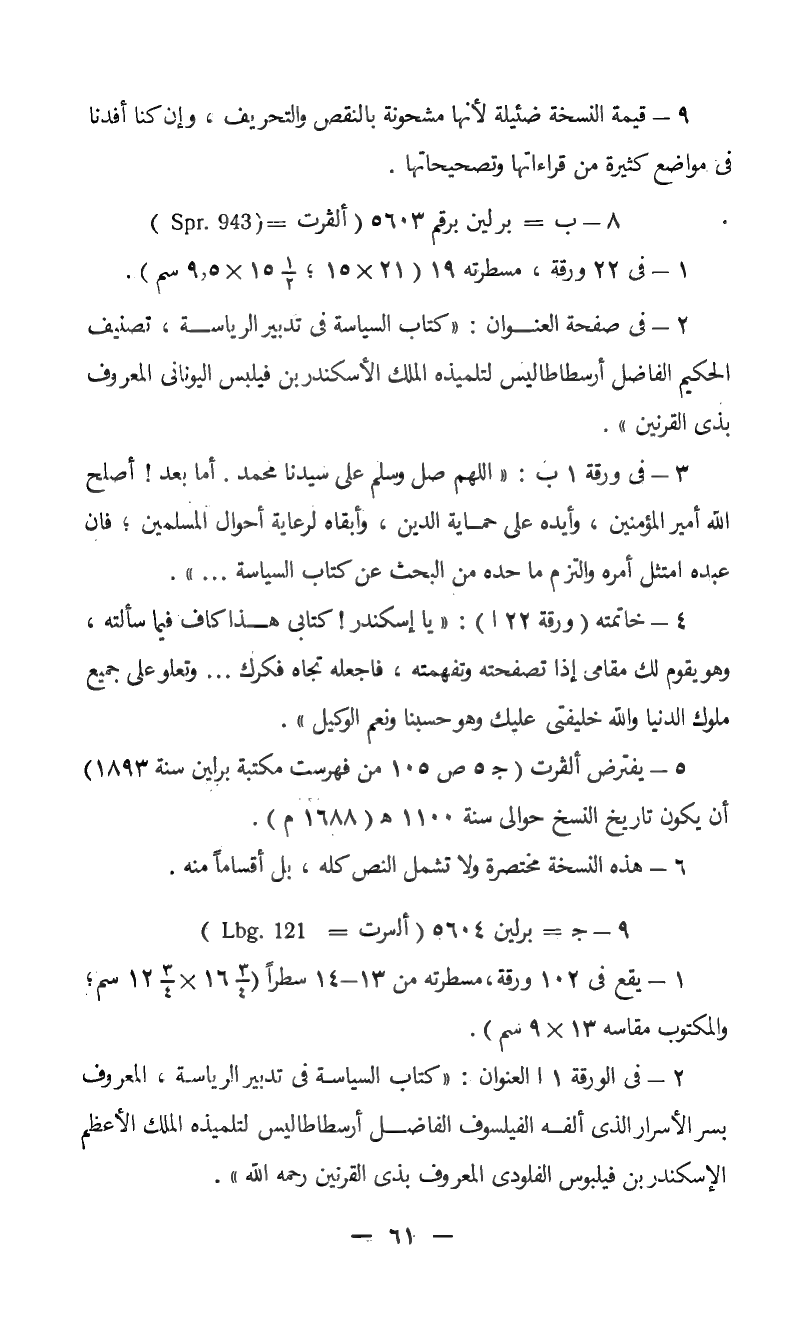 ٩ – قيمة النسخة ضئيلة لأنها مشحونة بالنقص والتحريف ، وإن كنا أفدنا
فى مواضع كثيرة من قراءاتها وتصحيحاتها .
٨ – ب = برلين برقم ٥٦٠٣ ( ألڤرت = Spr. 943 )
١ – فى ٢٢ ورقة ، مسطرته ١٩ ( ٢١ × ١٥ ؛ ١/٢ ١٥ × ٩,٥ سم ) .
٢ – فى صفحة العنــوان : « كتاب السياسة فى تدبير الرياســة ، تصنيف
الحكيم الفاضل أرسطاطاليس لتلميذه الملك الأسكندر بن فيلبس اليونانى المعروف
بذى القرنين » .
٣ – فى ورقة ١ ب : « اللهم صل وسلم على سيدنا محمد . أما بعد ! أصلح
الله أمير المؤمنين ، وأيده على حمــاية الدين ، وأبقاه لرعاية أحوال المسلمين ؛ فان
عبده امتثل أمره والتزم ما حده من البحث عن كتاب السياسة ... » .
٤ – خاتمته ( ورقة ٢٢ ا ) : « يا إسكندر ! كتابى هــذا كاف فيما سألته ،
وهو يقوم لك مقامى إذا تصفحته وتفهمته ، فاجعله تجاه فكرك ... وتعلو على جميع
ملوك الدنيا والله خليفتى عليك وهو حسبنا ونعم الوكيل » .
٥ – يفترض ألڤرت ( ج ٥ ص ١٠٥ من فهرست مكتبة برلين سنة ١٨٩٣)
أن يكون تاريخ النسخ حوالى سنة ١١٠٠ ه ( ١٦٨٨ م ) .
٦ – هذه النسخة مختصرة ولا تشمل النص كله ، بل أقساماً منه .
٩ – ج = برلين ٥٦٠٤ ( ألسرت = Lbg. 121 )
١ – يقع فى ١٠٢ ورقة ، مسطرته من ١٣–١٤ سطراً ( ٣/٤ ١٦ × ٣/٤ ١٢ سم ؛
والمكتوب مقاسه ١٣ × ٩ سم ) .
٢ – فى الورقة ١ ا العنوان : « كتاب السياسـة فى تدبير الرياسـة ، المعروف
بسر الأسرار الذى ألفــه الفيلسوف الفاضــل أرسطاطاليس لتلميذه الملك الأعظم
الإسكندر بن فيلبوس الفلودى المعروف بذى القرنين رحمه الله » .
— ٦١ —